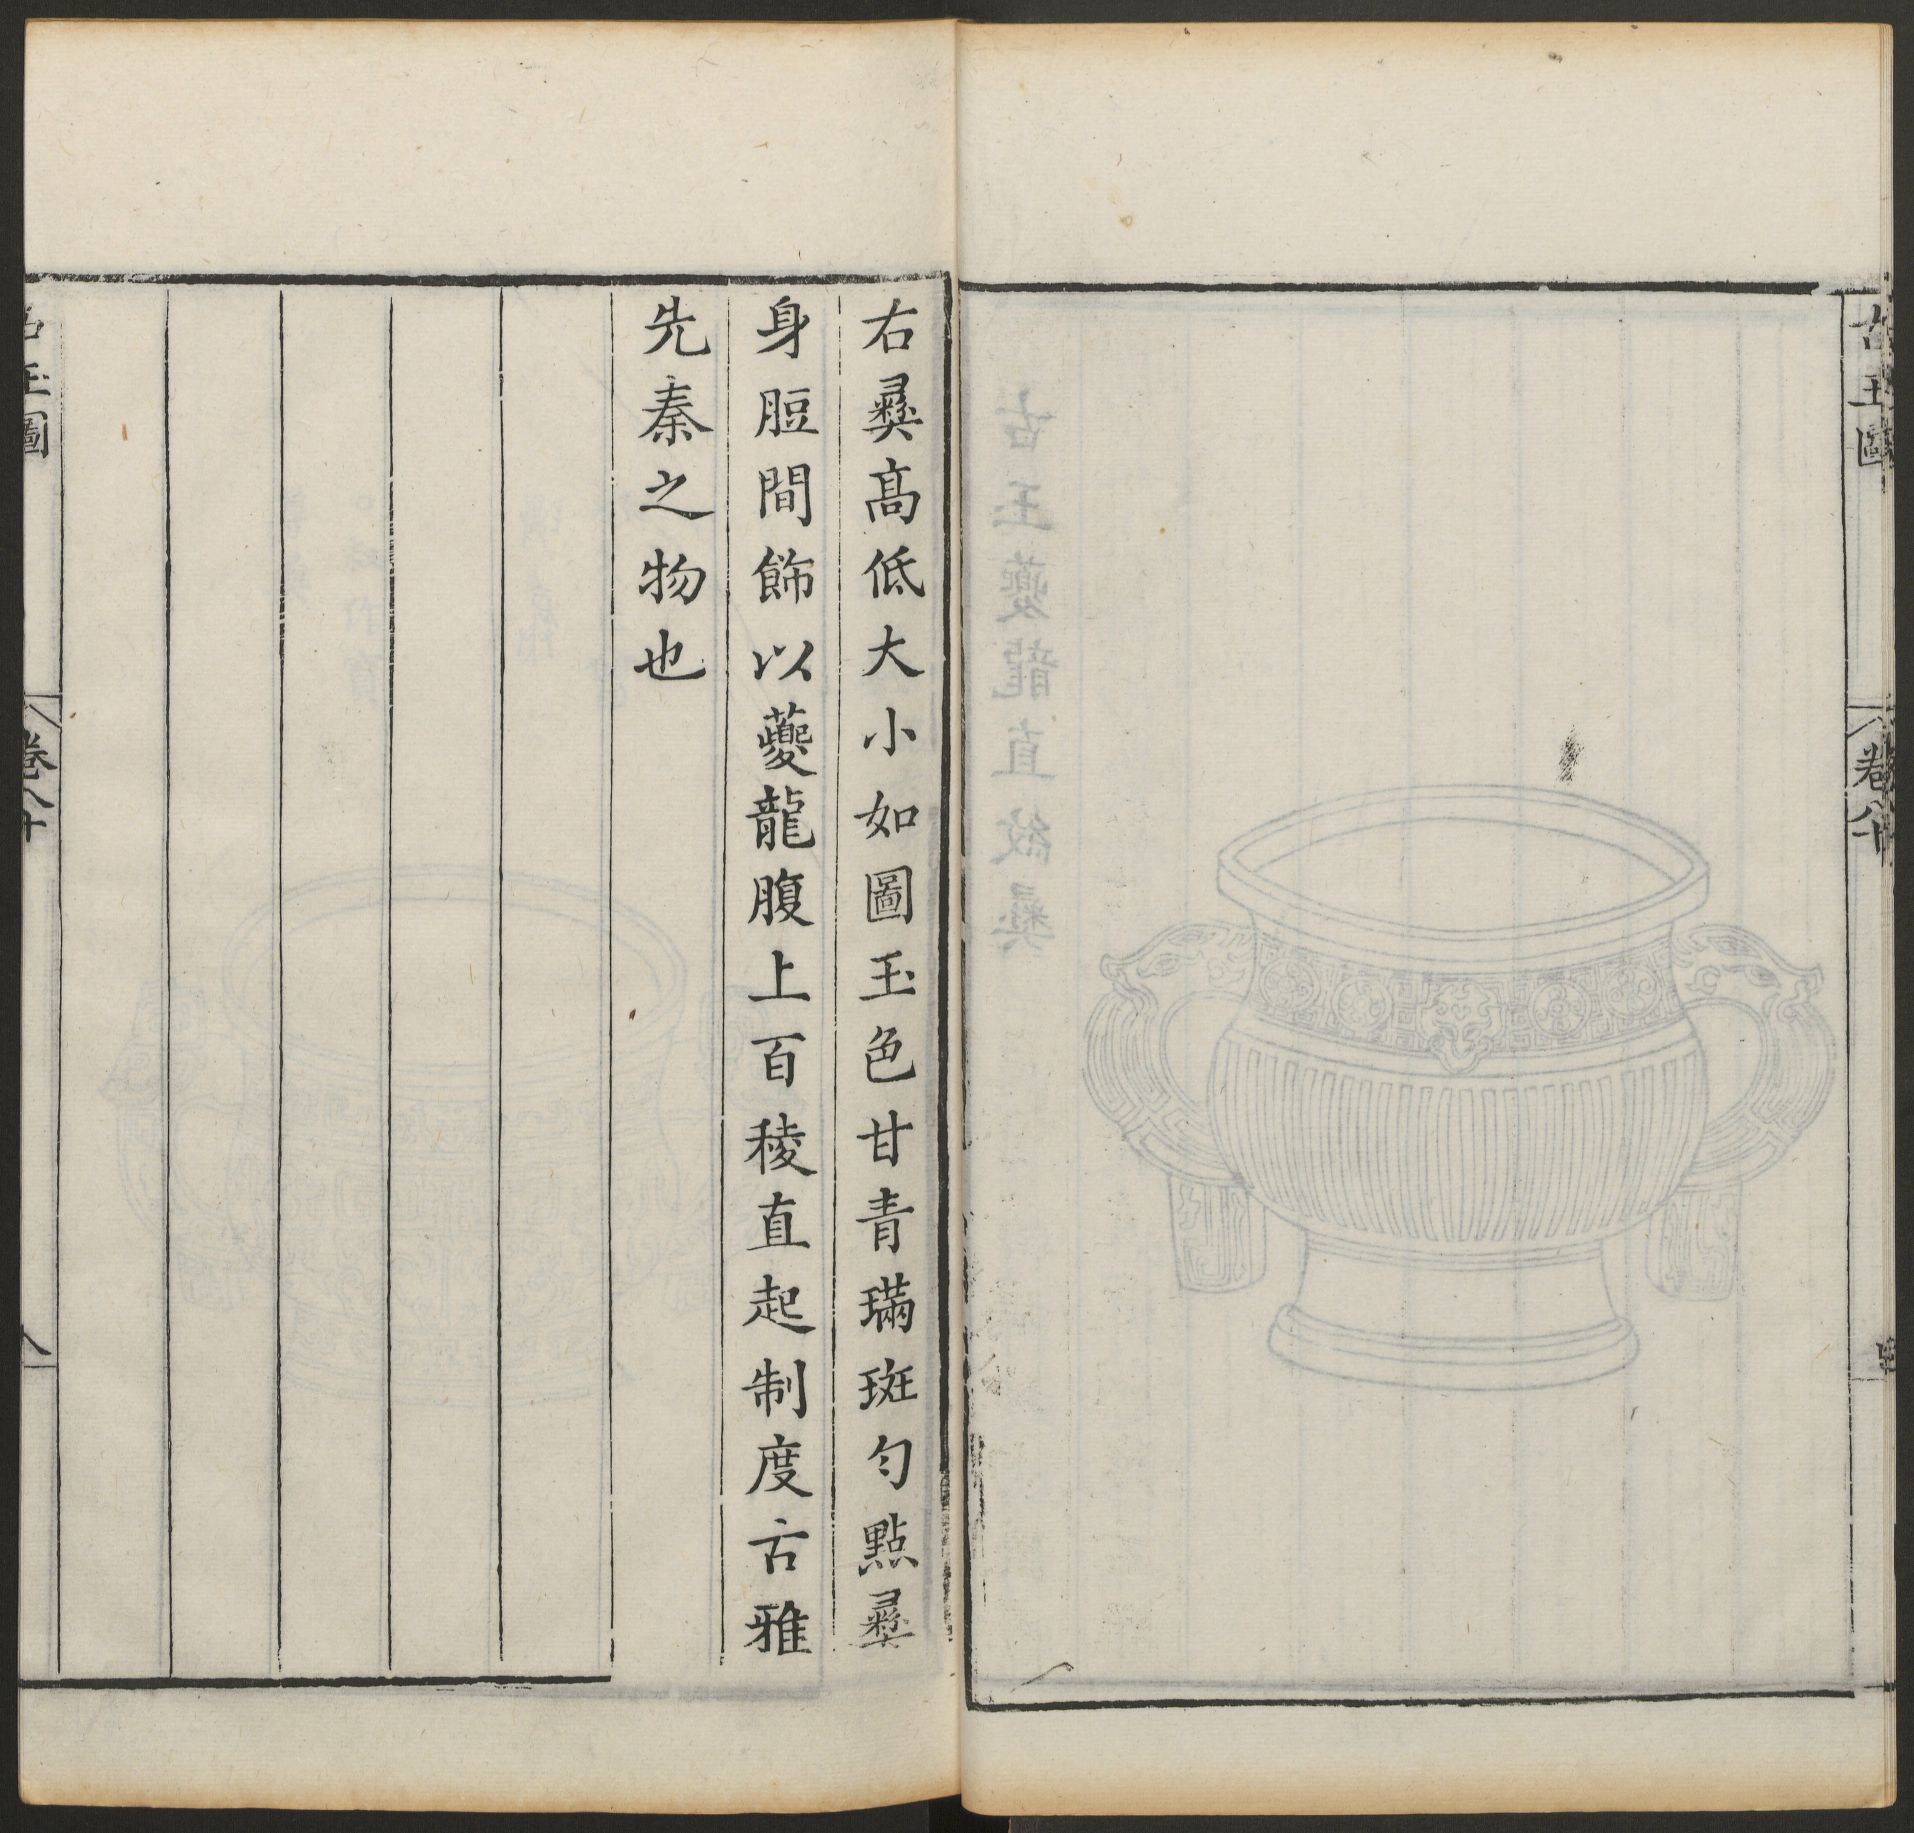 古玉圖
卷八十
右彝高低大小如圖玉色甘青璊斑勻點彝
身脰間飾以夔龍腹上百稜直起制度古雅
先秦之物也
古玉圖
卷八十
八